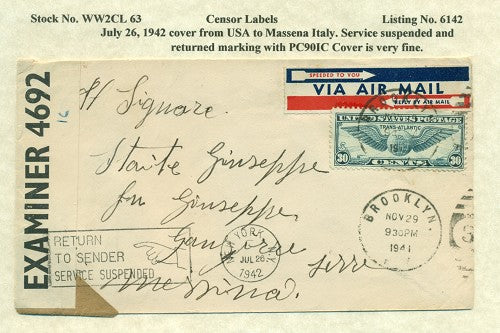 Stock No. WW2CL 63 Censor Labels Listing No. 6142
July 26, 1942 cover from USA to Massena Italy. Service suspended and
returned marking with PC90IC Cover is very fine.
EXAMINER 4692
16
SPEEDED TO YOU
VIA AIR MAIL
REPLY BY AIR MAIL
UNITED STATES POSTAGE
TRANS-ATLANTIC
30 CENTS 30
Signore
Giuseppe
fu Giuseppe
Messina
BROOKLYN,
NOV 29
930 PM
1941
RETURN
TO SENDER
SERVICE SUSPENDED
NEW YORK, N.Y.
JUL 26
1942